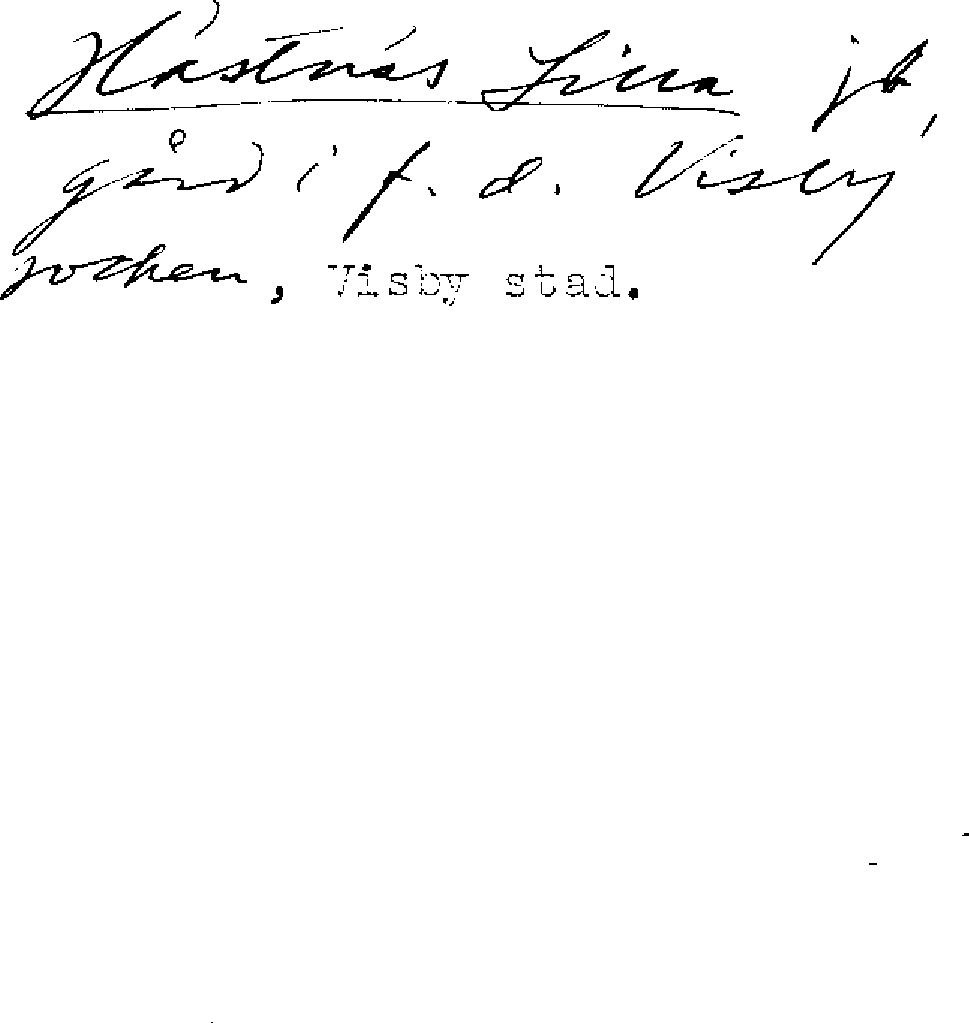 Hästnäs Lilla jb,
gård i f. d. Visby
socken, Visby stad.